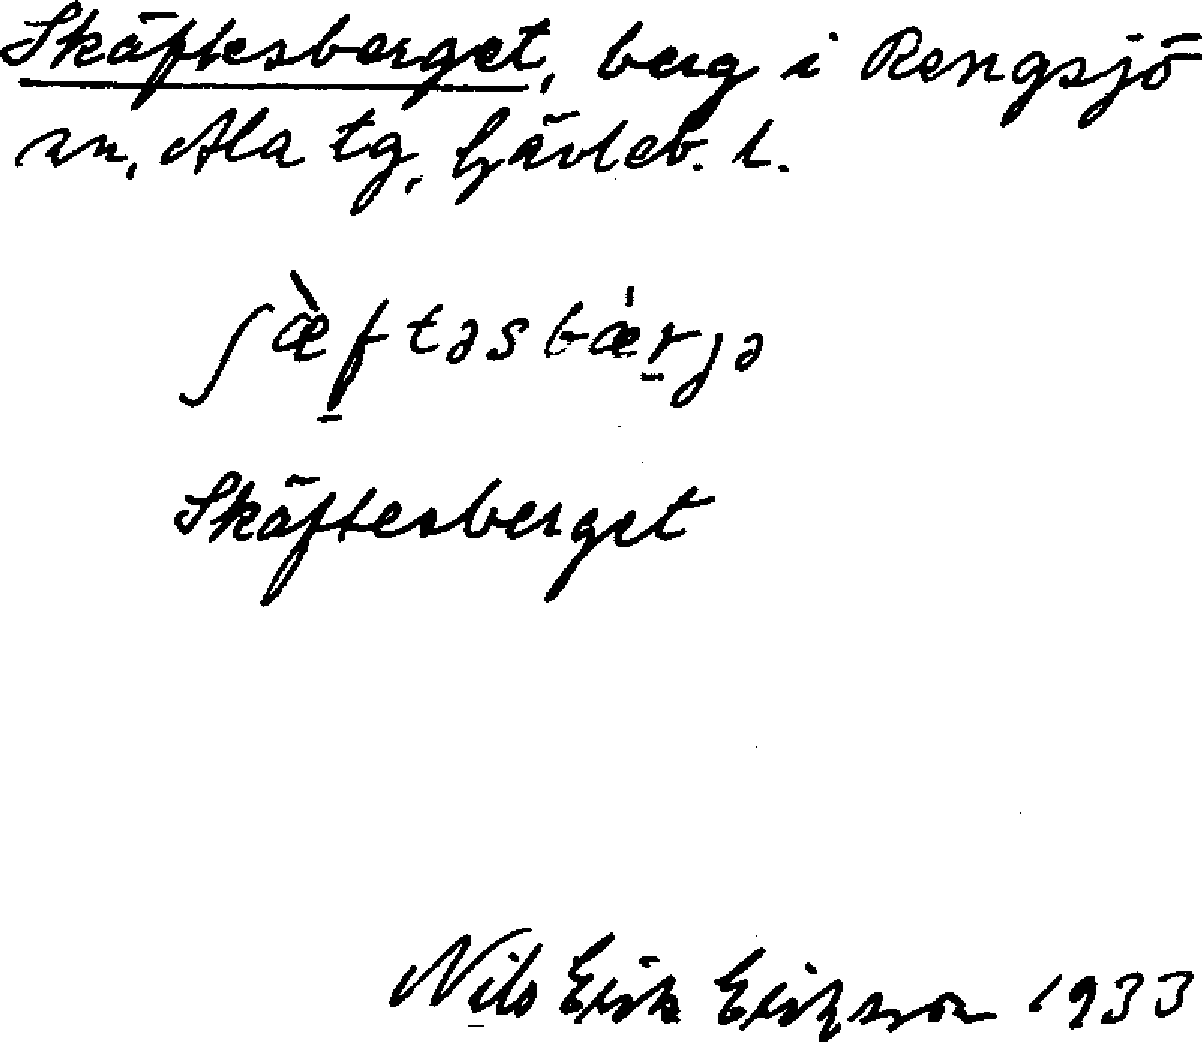 Skäftesberget, berg i Rengsjö
sn, Ala tg, Gävleb. l.
ʃæ̀f̠təsbæ̍r̠jə
Skäftesberget
Nils Erik Eriksson 1933